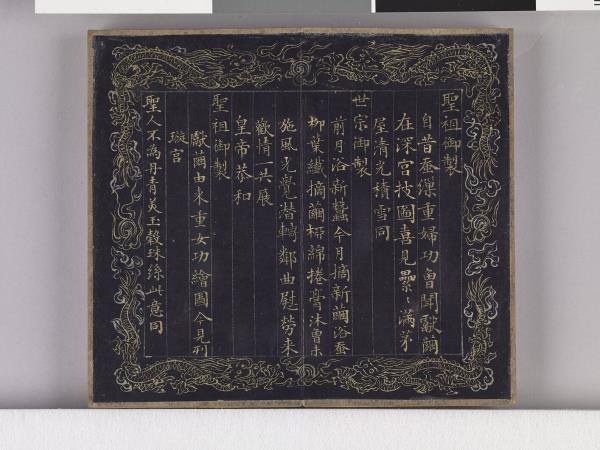 聖祖御製
自昔蚕繅重婦功曾聞獻繭
在深宮披圖喜見纍〻滿茅
屋清光積雪同
世宗御製
前月浴新蠶今月摘新繭浴蚕
柳葉纖摘繭柳綿捲膏沐曾未
施風光覺潛轉鄰曲慰勞来
歡情一共展
皇帝恭和
聖祖御製
獻繭由来重女功繪圖今見列
璇宮
聖人不為丹青美玉穀珠絲此意同